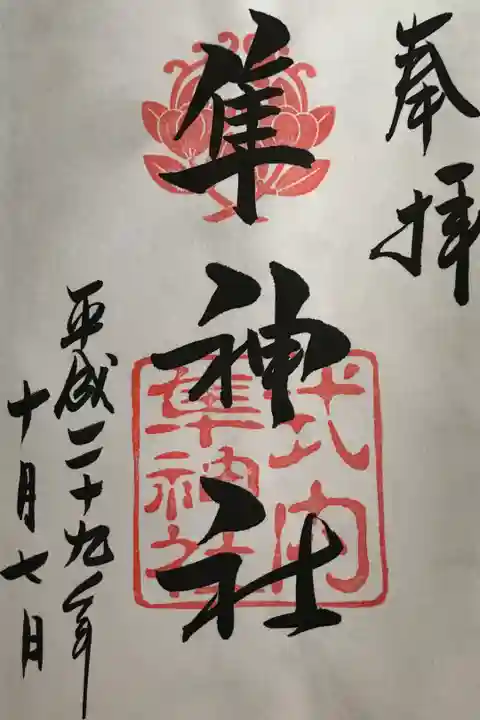 奉拝
隼神社
式内
隼神社
平成二十九年
十月七日